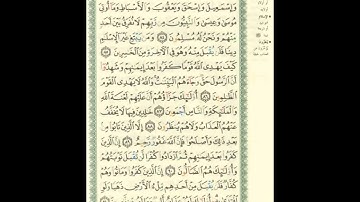 وَإِسْمَٰعِيلَ وَإِسْحَٰقَ وَيَعْقُوبَ وَٱلْأَسْبَاطِ وَمَآ أُوتِىَ
مُوسَىٰ وَعِيسَىٰ وَٱلنَّبِيُّونَ مِن رَّبِّهِمْ لَا نُفَرِّقُ بَيْنَ أَحَدٍ
مِّنْهُمْ وَنَحْنُ لَهُۥ مُسْلِمُونَ ٨٤ وَمَن يَبْتَغِ غَيْرَ ٱلْإِسْلَٰمِ
دِينًا فَلَن يُقْبَلَ مِنْهُ وَهُوَ فِى ٱلْءَاخِرَةِ مِنَ ٱلْخَٰسِرِينَ ٨٥
كَيْفَ يَهْدِى ٱللَّهُ قَوْمًا كَفَرُوا۟ بَعْدَ إِيمَٰنِهِمْ وَشَهِدُوٓا۟
أَنَّ ٱلرَّسُولَ حَقٌّ وَجَآءَهُمُ ٱلْبَيِّنَٰتُ وَٱللَّهُ لَا يَهْدِى ٱلْقَوْمَ
ٱلظَّٰلِمِينَ ٨٦ أُو۟لَٰٓئِكَ جَزَآؤُهُمْ أَنَّ عَلَيْهِمْ لَعْنَةَ ٱللَّهِ
وَٱلْمَلَٰٓئِكَةِ وَٱلنَّاسِ أَجْمَعِينَ ٨٧ خَٰلِدِينَ فِيهَا لَا يُخَفَّفُ
عَنْهُمُ ٱلْعَذَابُ وَلَا هُمْ يُنظَرُونَ ٨٨ إِلَّا ٱلَّذِينَ تَابُوا۟ مِنۢ
بَعْدِ ذَٰلِكَ وَأَصْلَحُوا۟ فَإِنَّ ٱللَّهَ غَفُورٌ رَّحِيمٌ ٨٩ إِنَّ ٱلَّذِينَ
كَفَرُوا۟ بَعْدَ إِيمَٰنِهِمْ ثُمَّ ٱزْدَادُوا۟ كُفْرًا لَّن تُقْبَلَ تَوْبَتُهُمْ
وَأُو۟لَٰٓئِكَ هُمُ ٱلضَّآلُّونَ ٩٠ إِنَّ ٱلَّذِينَ كَفَرُوا۟ وَمَاتُوا۟ وَهُمْ
كُفَّارٌ فَلَن يُقْبَلَ مِنْ أَحَدِهِم مِّلْءُ ٱلْأَرْضِ ذَهَبًا وَلَوِ